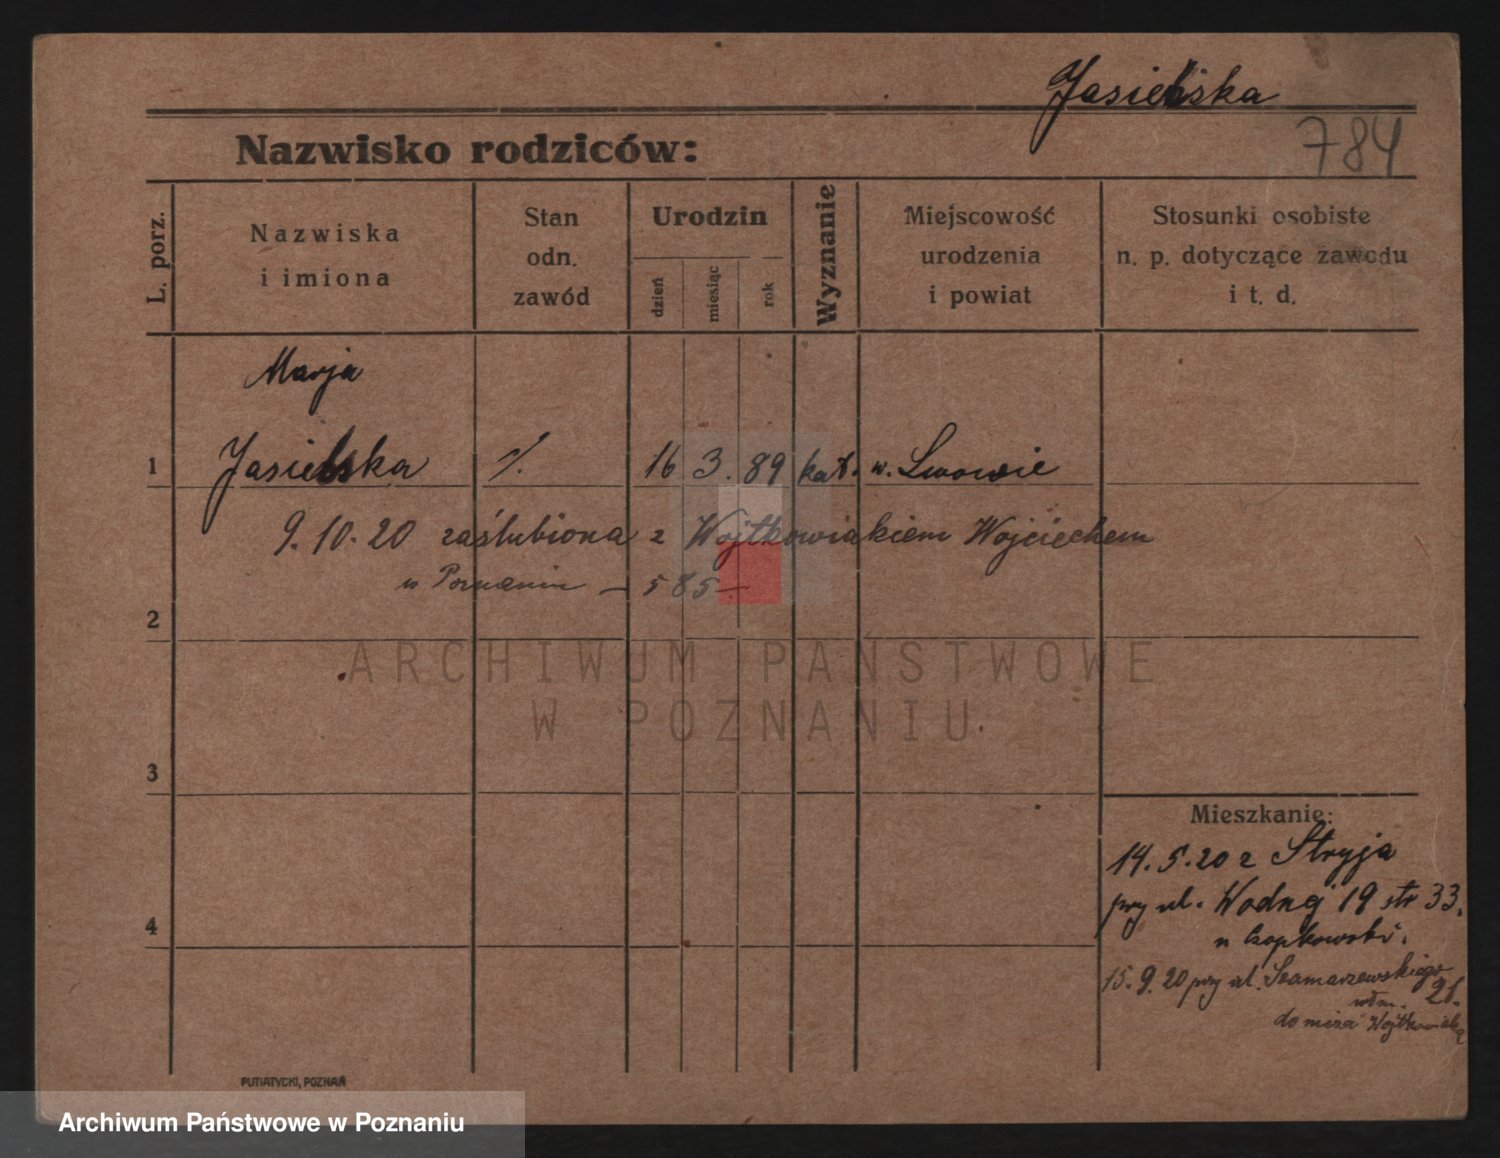 Jasielska
784
Nazwisko rodziców:
L. porz.
Nazwiska
i imiona
Stan
odn.
zawód
Urodzin
dzień
miesiąc
rok
Wyznanie
Miejscowość
urodzenia
i powiat
Stosunki osobiste
n. p. dotyczące zawodu
i t. d.
Marja
1 Jasielska %. 16 3. 89 kat. w. Lwowie
9.10.20 zaślubiona z Wojtkowiakiem Wojciechem
w Poznaniu — 585 —
2
ARCHIWUM PAŃSTWOWE
W POZNANIU
3
Mieszkanie:
14.5.20 z Stryja
przy ul. Wodnej 19 str 33.
u Czapkowski.
4
15.9.20 przy ul. Szamarzewskiego
21.
do męża Wojtkowiaka
PUTIATYCKI, POZNAŃ
Archiwum Państwowe w Poznaniu